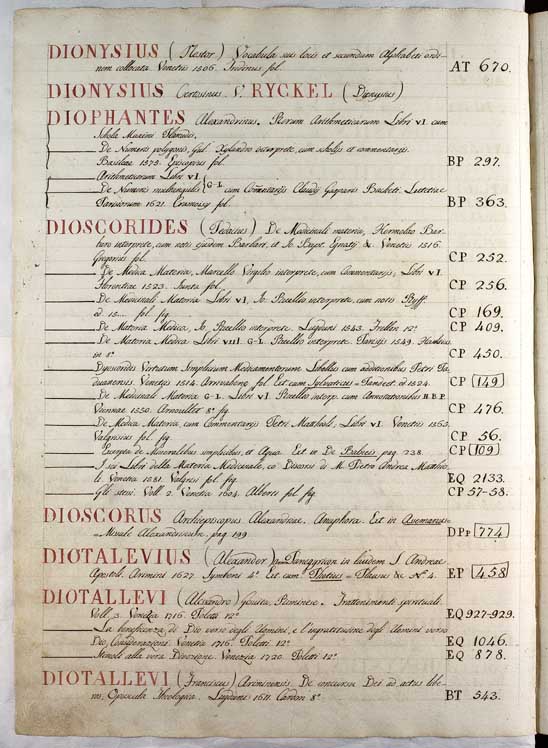 DIONYSIUS (Nestor) Vocabula suis locis et secundum Alphabeti ordi-
nem collocata Venetiis 1506. fol. AT 670.
DIONYSIUS V. RYCKEL (Dionysius)
DIOPHANTES Alexandrinus. Rerum Arithmeticarum Libri VI cum
De Numeris polygonis, Gul. Xylandro interprete, cum scholijs et commentarijs.
Basileae 1575. Episcopius fol. BP 297.
Arithmeticorum Libri VI
De Numeris multangulis G-L cum Comentarijs Claudij Gasparis Bacheti. Lutetiae
Parisiorum 1621. fol. BP 363.
DIOSCORIDES (Pedacius) De Medicinali materia, Hermolao Bar-
baro interprete, cum notis ejusdem Barbari, et Jo. Bapt. Egnatij &. Venetiis 1516.
Gregorius fol. CP 252.
De Medica Materia, Marcello Virgilio interprete, cum Commentarijs, Libri VI
Florentiae 1523. Junta fol. CP 256.
De Medicinali Materia Libri VI, Jo. Ruellio interprete, cum notis Ruff.
ed. 15... fol. fig. CP 169.
De Materia Medica, Jo. Ruellio interprete. Lugduni 1543. Frellon 12° CP 409.
De Materia Medica Libri VIII G-L Ruellio interprete. Parisijs 1549.
in 8° CP 450.
Dyoscoridis Virtutum Simplicium Medicamentorum Libellus cum additionibus Petri Pa-
duanensis. Venetijs 1514. Arrivabene fol. Est cum Sylvaticus = Pandect. ed 1524. CP 149
De Medicinali Materia G-L Libri VI Ruellio interp. cum Annotationibus H.B.P.
Viennae 1550. Arnoullet 8° fig. CP 476.
De Medica Materia cum Commentarijs Petri Matthioli, Libri VI Venetiis 1565.
Valgrisius fol. fig. CP 56.
Excerpta de Mineralibus simplicibus, et Aqua. Ext. in De Balneis pag. 298. CP 109
I sei Libri della Materia Medicinale, co' Discorsi di M. Pietro Andrea Matthio-
li Venetia 1581. Valgrisi fol. fig. EQ 2133.
Gli stessi. Voll. 2. Venetia 1604. Alberti fol. fig. CP 57-58.
DIOSCORUS Archiepiscopus Alexandriae. Anaphora. Ext. in
Missale Alexandrinum. pag. 199 DPp 774
DIOTALEVIUS (Alexander) Panegyricon in laudem S. Andreae
Apostoli. Arimini 1627. Symbenii 4° Est cum = &c N° 4. EP 458
DIOTALLEVI (Alessandro) Gesuita, Riminese. Trattenimenti spirituali.
Voll. 3. Venezia 1716. Poletti 12° EQ 927-929.
La beneficenza di Dio verso degli Uomini, e l'ingratitudine degli Uomini verso
Dio, Considerazioni. Venezia 1716. Poletti 12° EQ 1046.
Stimoli alla vera Divozione. Venezia 1720. Poletti 12° EQ 878.
DIOTALLEVI (Franciscus) Ariminensis. De concursu Dei ad actus libe-
ros, Opuscula theologica. Lugduni 1611. Cardon 8° BT 543.